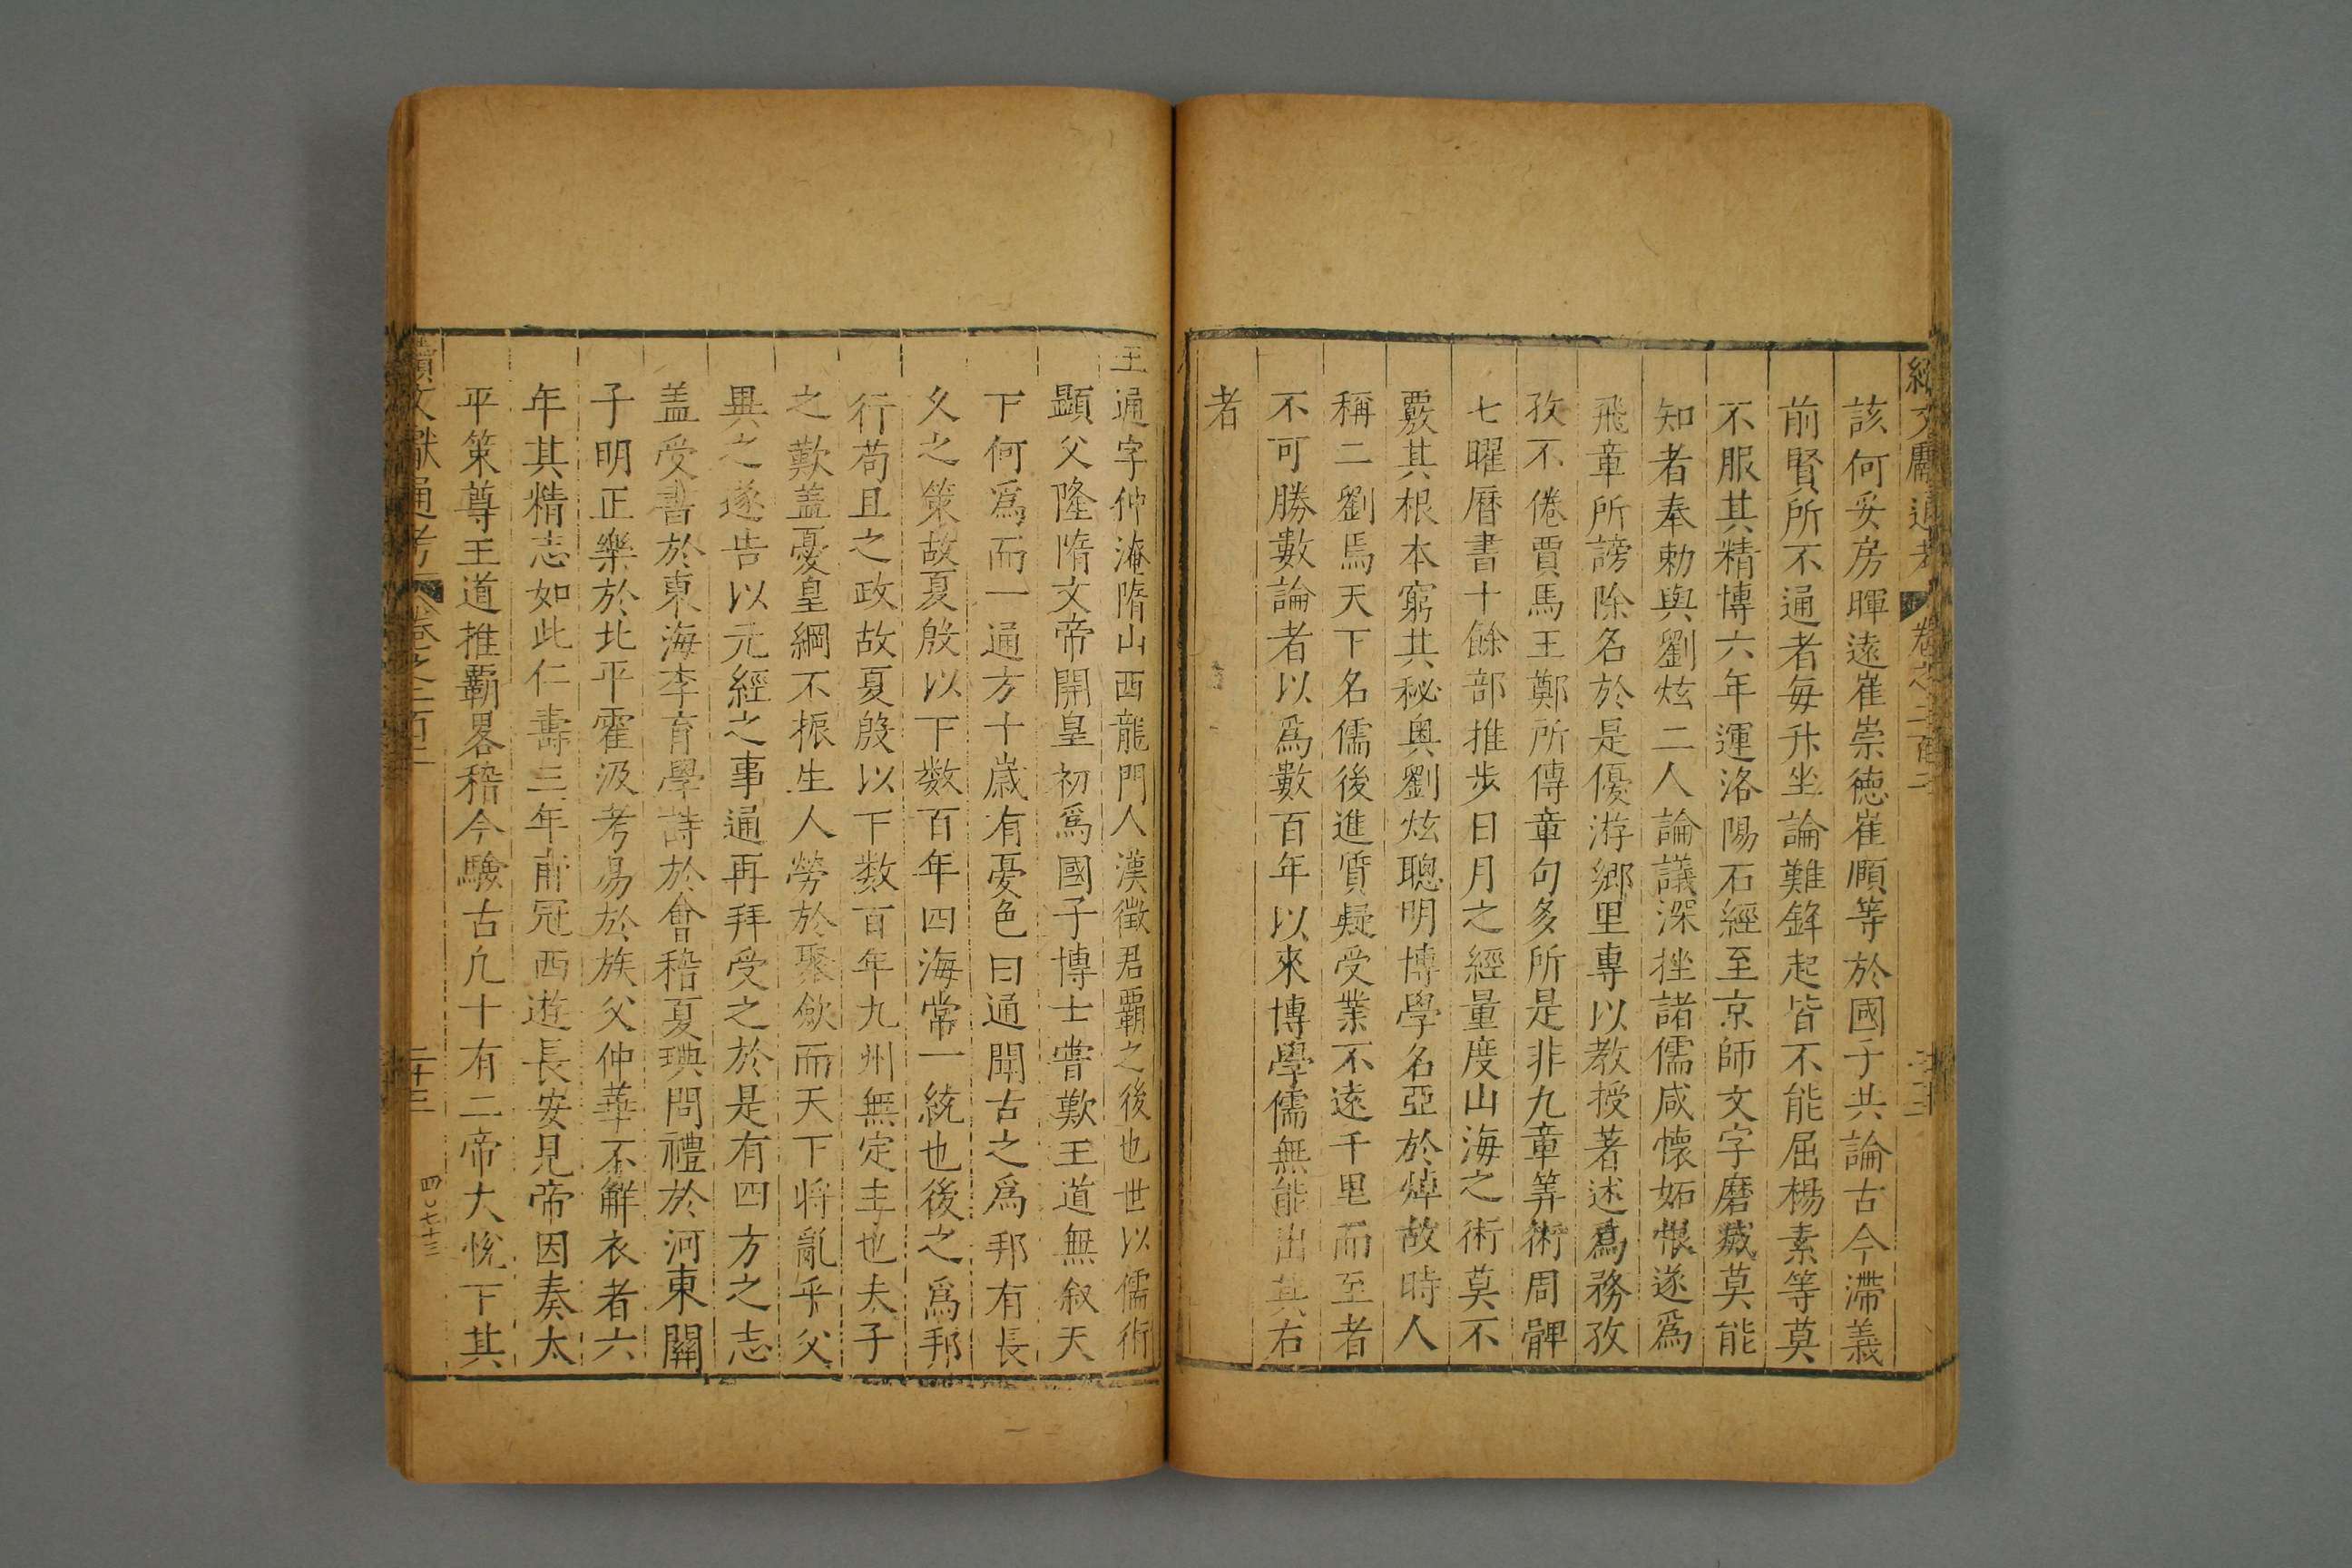 續文獻通考 卷之二百二
該何妥房暉遠崔崇德崔頤等於國子共論古今滯義
前賢所不通者每升坐論難鋒起皆不能屈楊素等莫
不服其精博六年運洛陽石經至京師文字磨滅莫能
知者奉勅與劉炫二人論議深挫諸儒咸懷妬恨遂爲
飛章所謗除名於是優游鄉里專以教授著述爲務孜
孜不倦賈馬王鄭所傳章句多所是非九章筭術周髀
七曜曆書十餘部推步日月之經量度山海之術莫不
覈其根本窮其秘奧劉炫聰明博學名亞於焯故時人
稱二劉焉天下名儒後進質疑受業不遠千里而至者
不可勝數論者以爲數百年以來博學儒無能出其右
者
王通字仲淹隋山西龍門人漢徵君霸之後也世以儒術
顯父隆隋文帝開皇初爲國子博士嘗歎王道無叙天
下何爲而一通方十歲有憂色曰通聞古之爲邦有長
久之策故夏殷以下数百年四海常一統也後之爲邦
行苟且之政故夏殷以下数百年九州無定主也夫子
之歎盖憂皇綱不振生人勞於聚歛而天下将亂乎父
異之遂告以元經之事通再拜受之於是有四方之志
盖受書於東海李育學詩於會稽夏琠問禮於河東關
子明正樂於北平霍汲考易於族父仲華不解衣者六
年其精志如此仁壽三年甫冠西遊長安見帝因奏太
平策尊王道推霸畧稽今驗古凢十有二帝大悅下其
續文獻通考 卷之二百二 二十三 四〇七十三